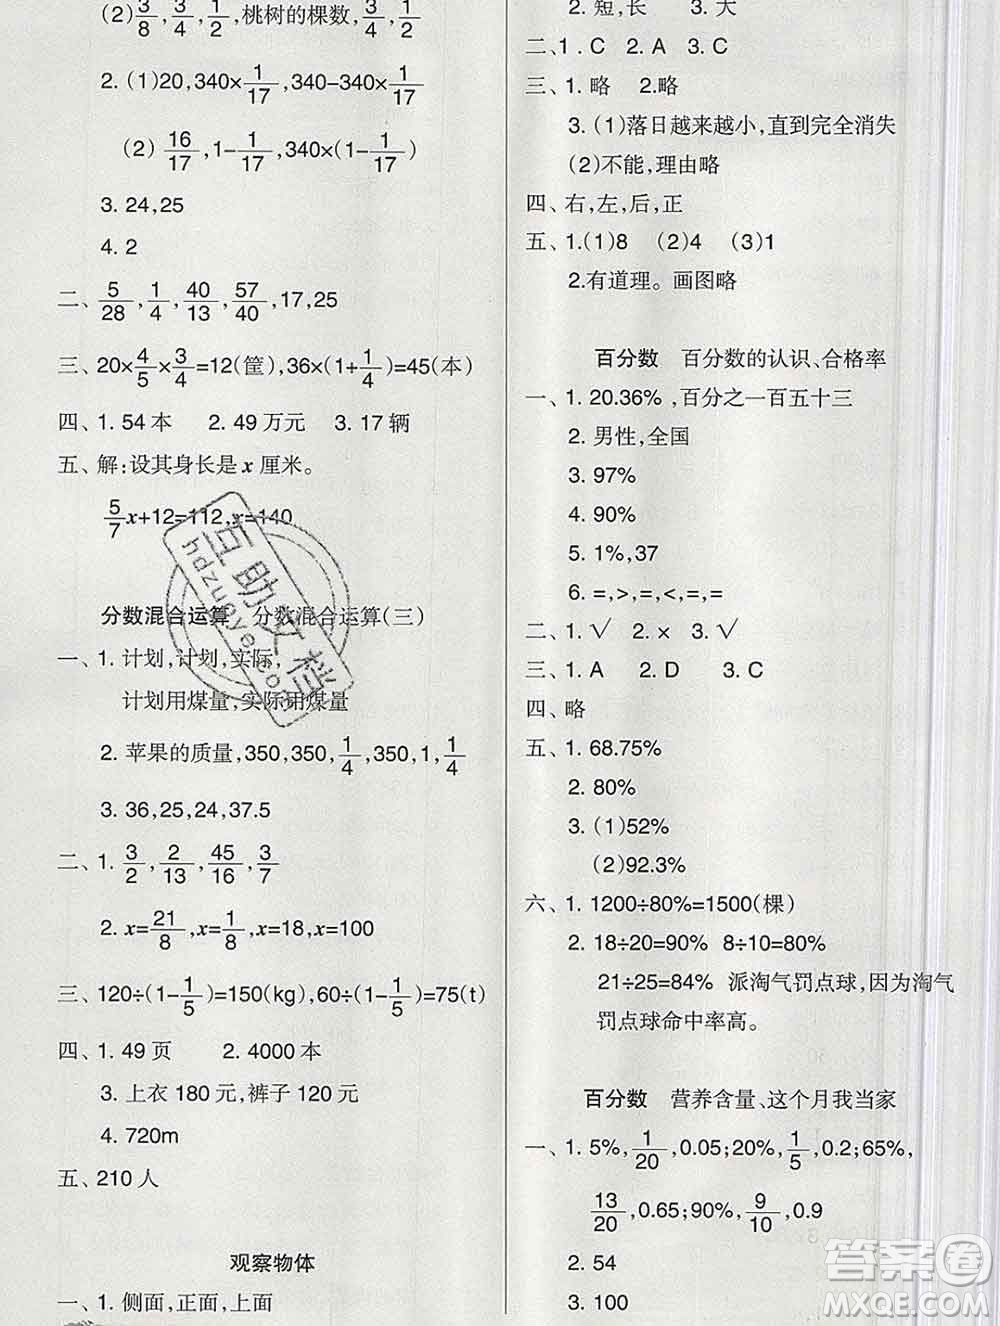 (2)3/8,4/3,1/2,桃树的棵数,3/4,1/2
2. (1)20,340×1/17,340-340×1/17
(2) 16/17,1-1/17,340×(1-1/17)
3. 24,25
4. 2
二、5/28,1/4,40/13,57/40,17,25
三、20×4/5×3/4=12(筐),36×(1+1/4)=45(本)
四、1. 54 本 2. 49 万元 3. 17 辆
五、解:设其身长是 x 厘米。
5/7x+12=112,x=140
分数混合运算 分数混合运算(三)
一、1. 计划,计划,实际,
计划用煤量,实际用煤量
2. 苹果的质量,350,350,1/4,350,1,1/4
3. 36,25,24,37.5
二、1. 3/2,2/13,45/16,3/7
2. x=21/8,x=1/8,x=18,x=100
三、120÷(1-1/5)=150(kg),60÷(1-1/5)=75(t)
四、1. 49 页 2. 4000 本
3. 上衣 180 元,裤子 120 元
4. 720m
五、210 人
观察物体
一、1. 侧面,正面,上面
2. 短,长 3. 大
二、1. C 2. A 3. C
三、1. 略 2.略
3. (1)落日越来越小,直到完全消失
(2)不能,理由略
四、右,左,后,正
五、1.(1)8 (2)4 (3)1
2.有道理。画图略
百分数 百分数的认识、合格率
一、1. 20.36% ,百分之一百五十三
2. 男性,全国
3. 97%
4. 90%
5. 1%,37
6. =,>,>,<,=,=
二、1. √ 2. × 3. √
三、1. A 2. D 3. C
四、略
五、1. 68.75%
2. 80%
3. (1)52%
(2)92.3%
六、1. 1200÷80%=1500(棵)
2. 18÷20=90% 8÷10=80%
21÷25=84% 派淘气罚点球,因为淘气
罚点球命中率高。
百分数 营养含量、这个月我当家
一、1. 5%,1/20,0.05;20%,1/5,0.2;65%,
13/20,0.65;90%,9/10,0.9
2. 54
3. 100
互助文档
hdzuoye.com
答案圈
MXQE.COM